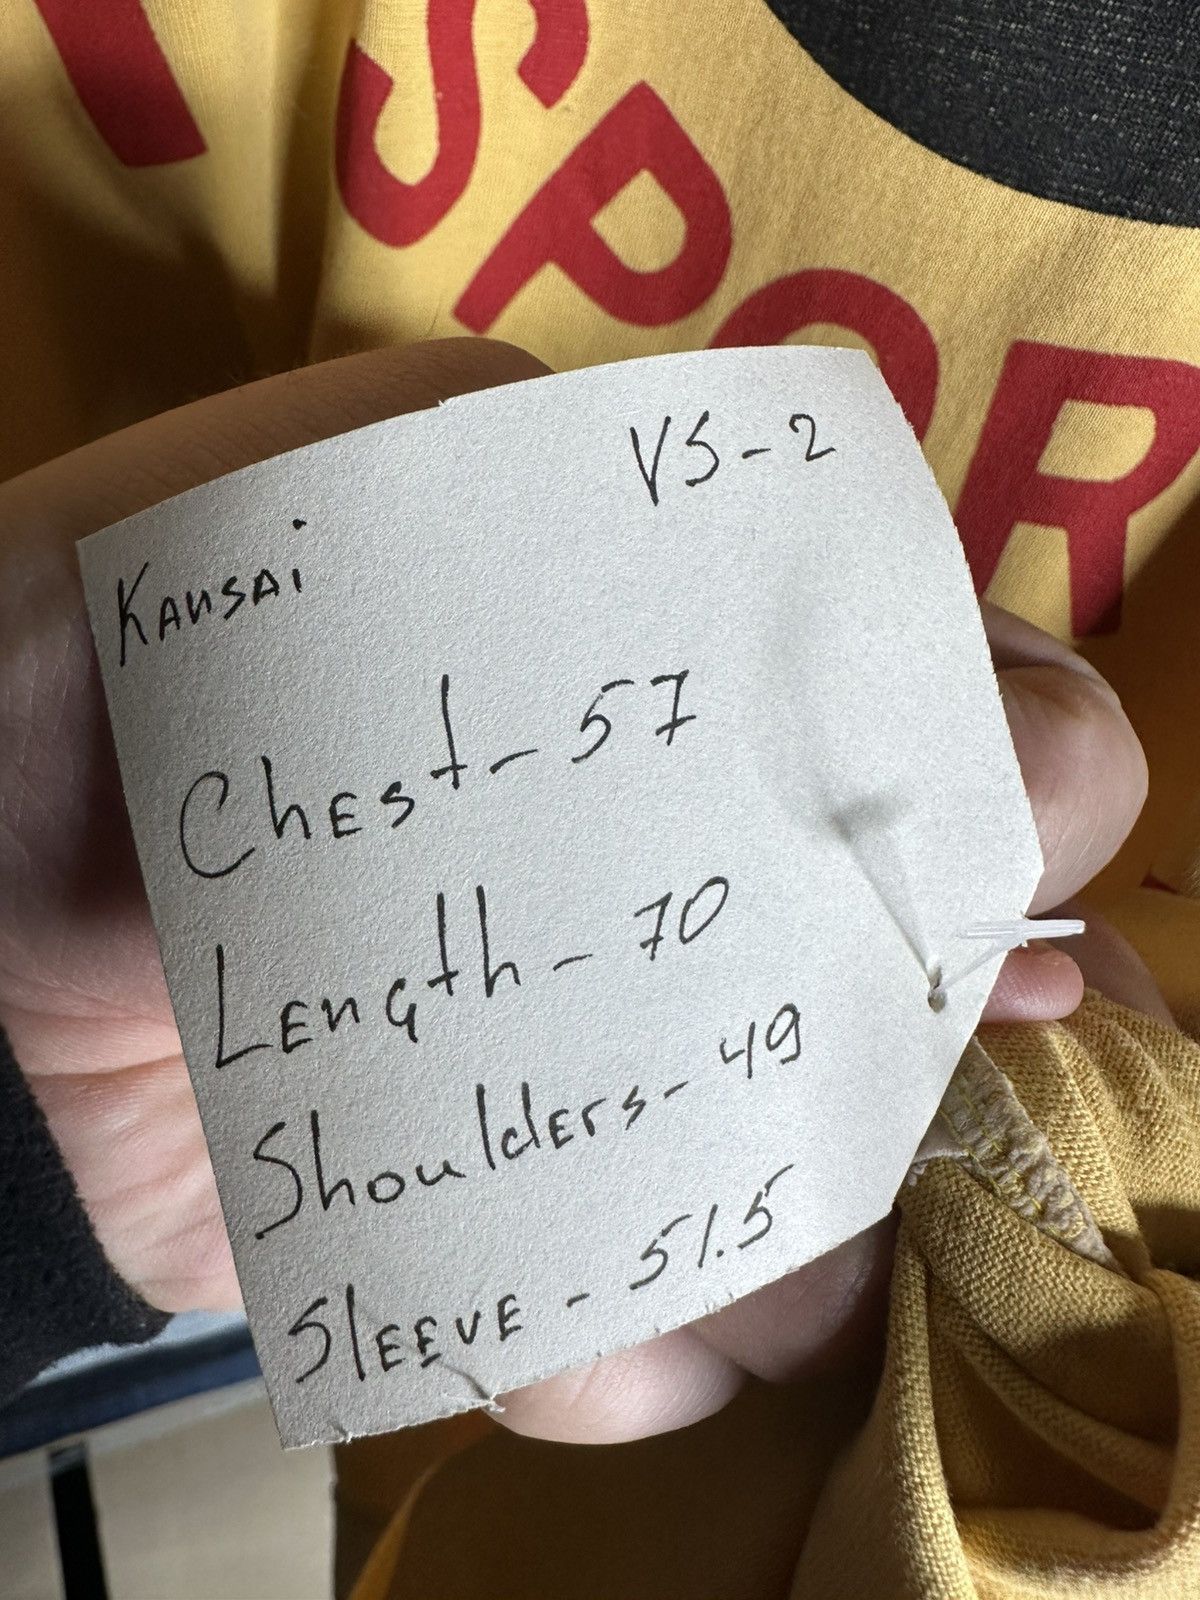 SPOR
VS-2
KANSAi
ChEst - 57
LEngth - 70
ShouldErs - 49
SlEEVE - 51.5